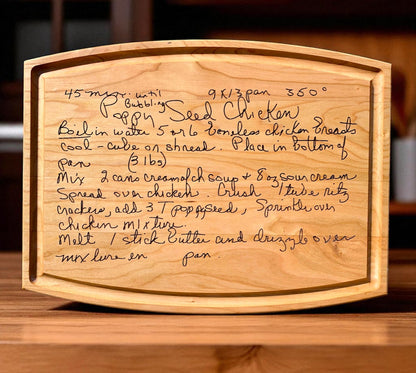 45 min. until bubbling 9X13 pan 350°
Poppy Seed Chicken
Boil in water 5 or 6 boneless chicken breasts
cool - cube or shread. Place in bottom of
pan (3 lbs)
Mix 2 cans cream of ch soup & 8 oz sour cream
Spread over chicken. Crush 1 tube ritz
crackers, add 3 T poppyseed, Sprinkle over
chicken mixture.
Melt 1 stick butter and drizzle over
mixture in pan.